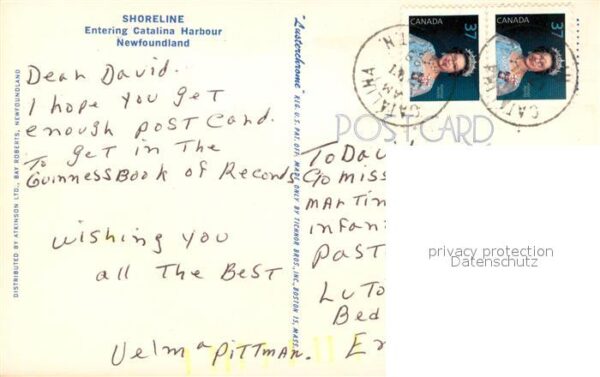 SHORELINE
Entering Catalina Harbour
Newfoundland
Dear David.
I hope you get
enough post card.
To get in the
Guinness Book of Records
wishing you
all The Best
Velma Pittman.
DISTRIBUTED BY ATKINSON LTD., BAY ROBERTS, NEWFOUNDLAND
"Lusterchrome" REG. U.S. PAT. OFF. MADE ONLY BY TICHNOR BROS., INC., BOSTON 15, MASS.
CANADA 37
CANADA 37
CATALINA
AM
CATALINA
POST CARD
To Dav
Go miss
martin
infan
Past
Luto
Bed
En
privacy protection
Datenschutz